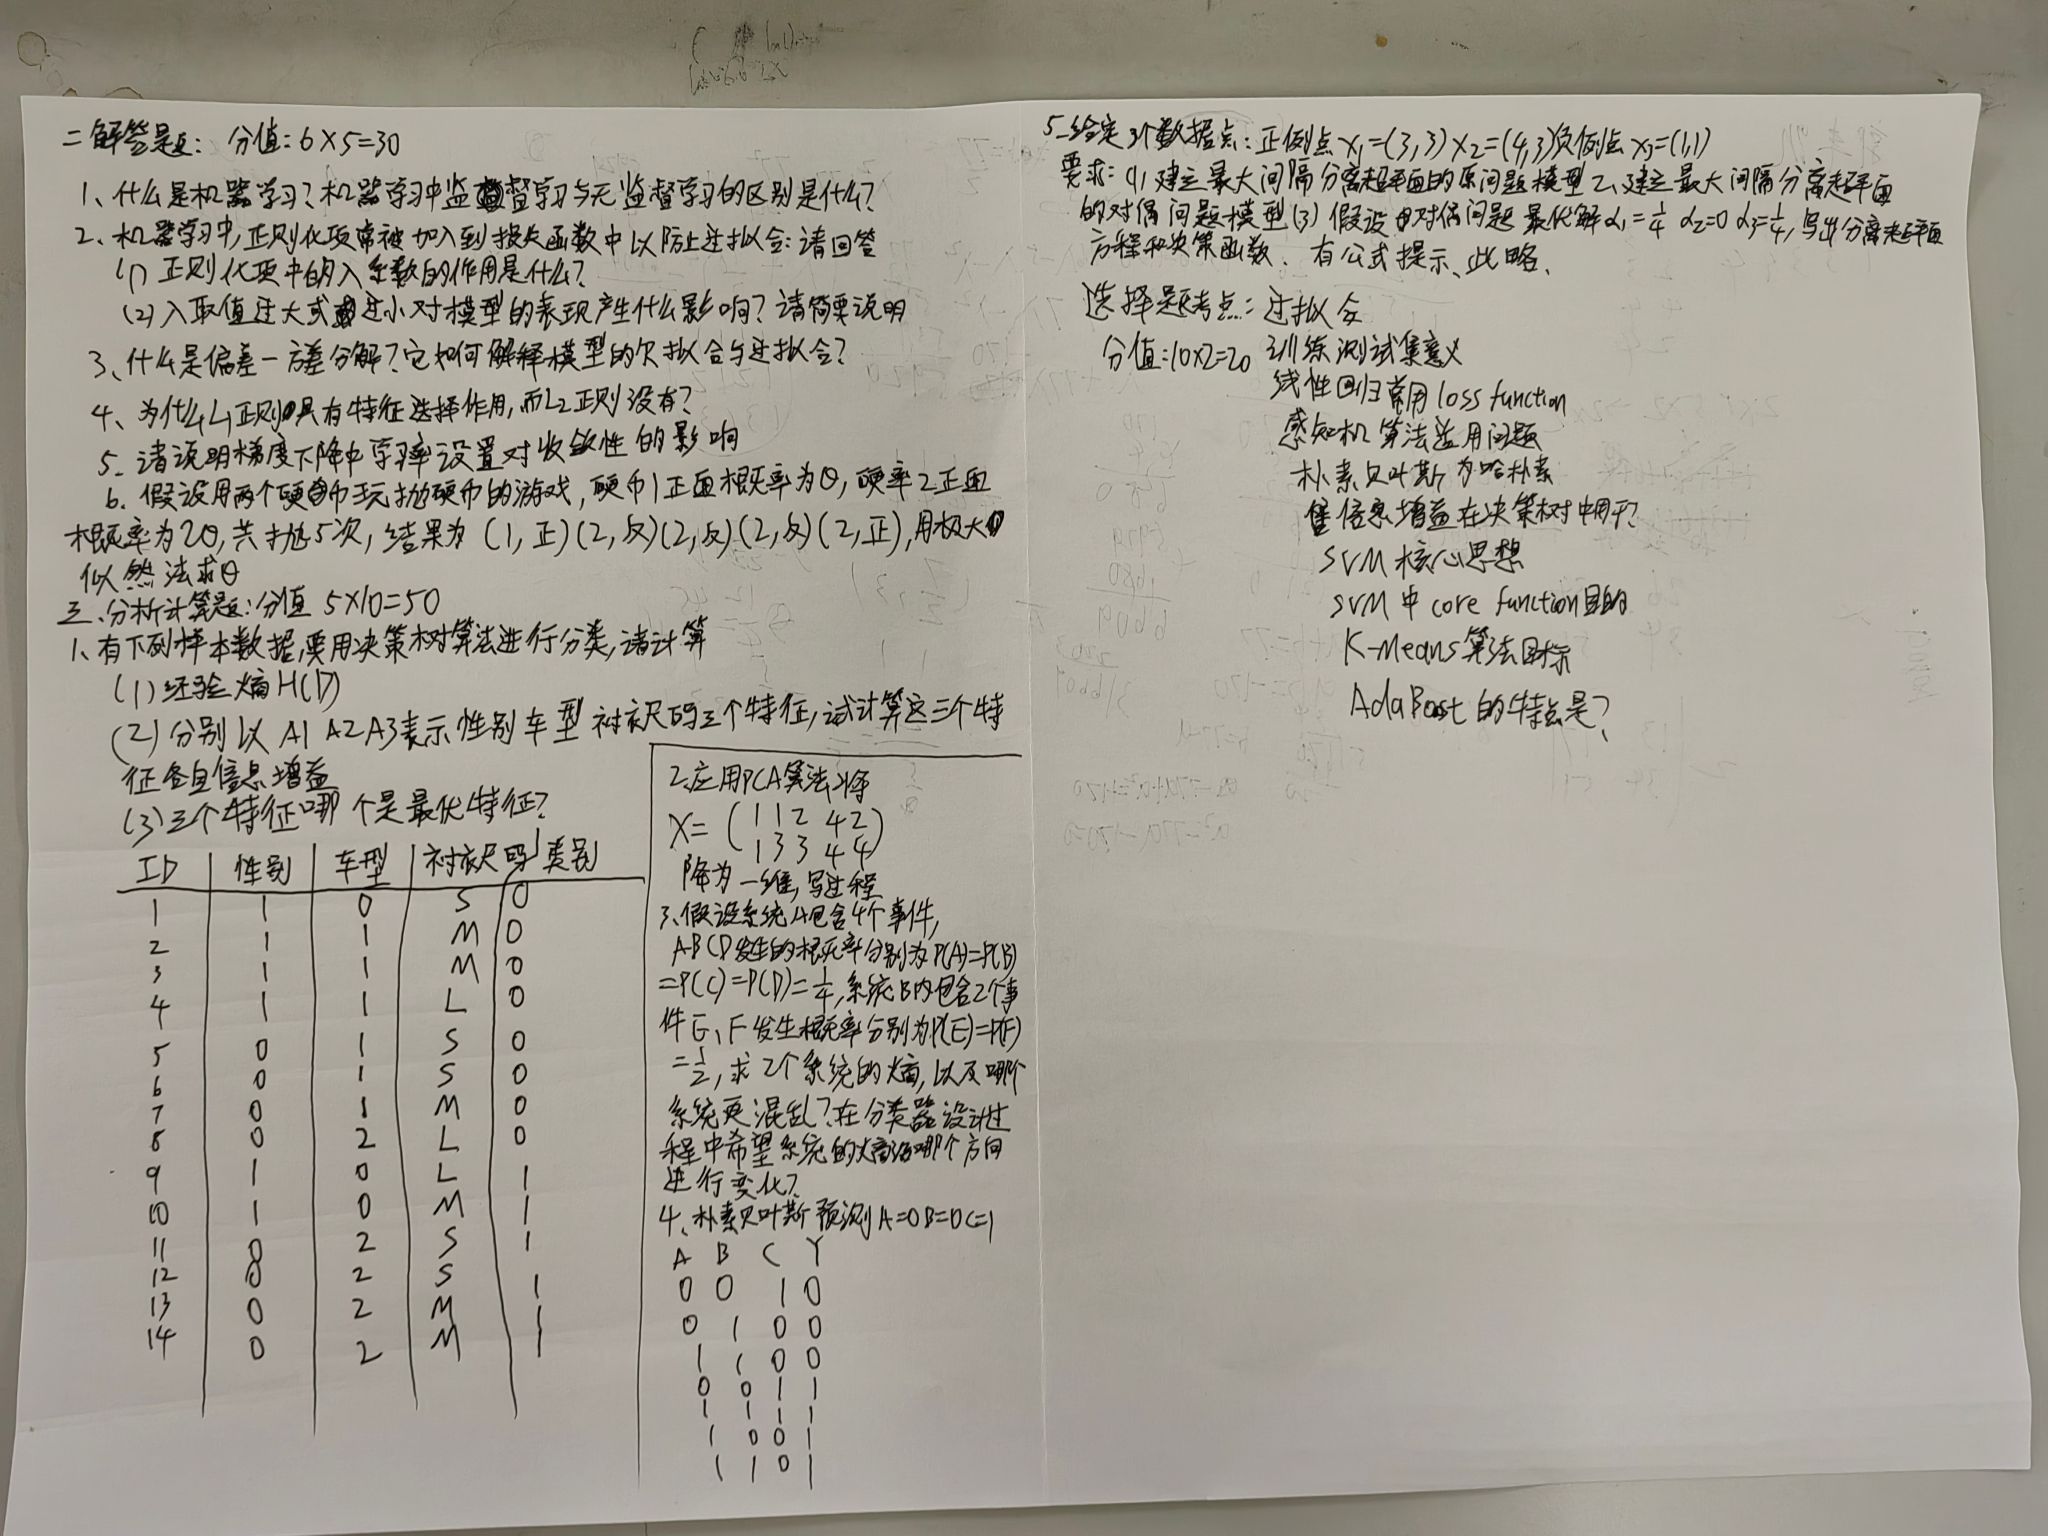 二解答题：分值：6×5=30
1、什么是机器学习？机器学习中监督学习与无监督学习的区别是什么？
2、机器学习中，正则化项常被加入到损失函数中以防止过拟合：请回答
(1) 正则化项中的入系数的作用是什么？
(2)入取值过大或过小对模型的表现产生什么影响？请简要说明
3、什么是偏差-方差分解？它如何解释模型的欠拟合与过拟合？
4、为什么L1正则具有特征选择作用，而L2正则没有？
5、请说明梯度下降中学习率设置对收敛性的影响
6、假设用两个硬币玩抛硬币的游戏，硬币1正面概率为θ，硬率2正面
概率为2θ，共抛5次，结果为(1,正)(2,反)(2,反)(2,反)(2,正)，用极大
似然法求θ
三、分析计算题：分值 5×10=50
1、有下列样本数据，要用决策树算法进行分类，请计算
(1)经验熵H(D)
(2)分别以A1 A2A3表示性别车型衬衣尺码三个特征，试计算这三个特
征各自信息增益
(3)三个特征哪个是最优特征？
ID 性别 车型 衬衣尺码 类别
1 1 0 S 0
2 1 1 M 0
3 1 1 M 0
4 1 1 L 0
5 0 1 S 0
6 0 1 S 0
7 0 1 M 0
8 0 2 L 0
9 1 0 L 1
10 1 0 M 1
11 0 2 S 1
12 0 2 S 1
13 0 2 M 1
14 0 2 M 1
2、应用PCA算法将
X=(1 1 2 4 2
1 3 3 4 4)
降为一维，写过程
3、假设系统A包含4个事件，
ABCD发生的概率分别为P(A)=P(B)
=P(C)=P(D)=1/4，系统B内包含2个事
件E、F发生概率分别为P(E)=P(F)
=1/2，求2个系统的熵，以及哪个
系统更混乱？在分类器设计过
程中希望系统的熵沿哪个方向
进行变化？
4、朴素贝叶斯预测A=0B=0C=1
A B C Y
0 0 1 0
0 1 0 0
1 1 0 0
0 0 1 1
1 1 1 1
1 0 0 1
1 1 0 1
5、给定3个数据点：正例点x1=(3,3)x2=(4,3)负例点x3=(1,1)
要求：(1)建立最大间隔分离超平面的原问题模型2、建立最大间隔分离超平面
的对偶问题模型(3)假设对偶问题最优解α1=1/4 α2=0 α3=1/4，写出分离超平面
方程和决策函数、有公式提示、此略、
选择题考点：过拟合
分值：10×2=20 训练测试集意义
线性回归常用loss function
感知机算法适用问题
朴素贝叶斯为哈朴素
信息增益在决策树中用于？
SVM核心思想
SVM中core function目的
K-Means算法目标
AdaBoost的特点是？